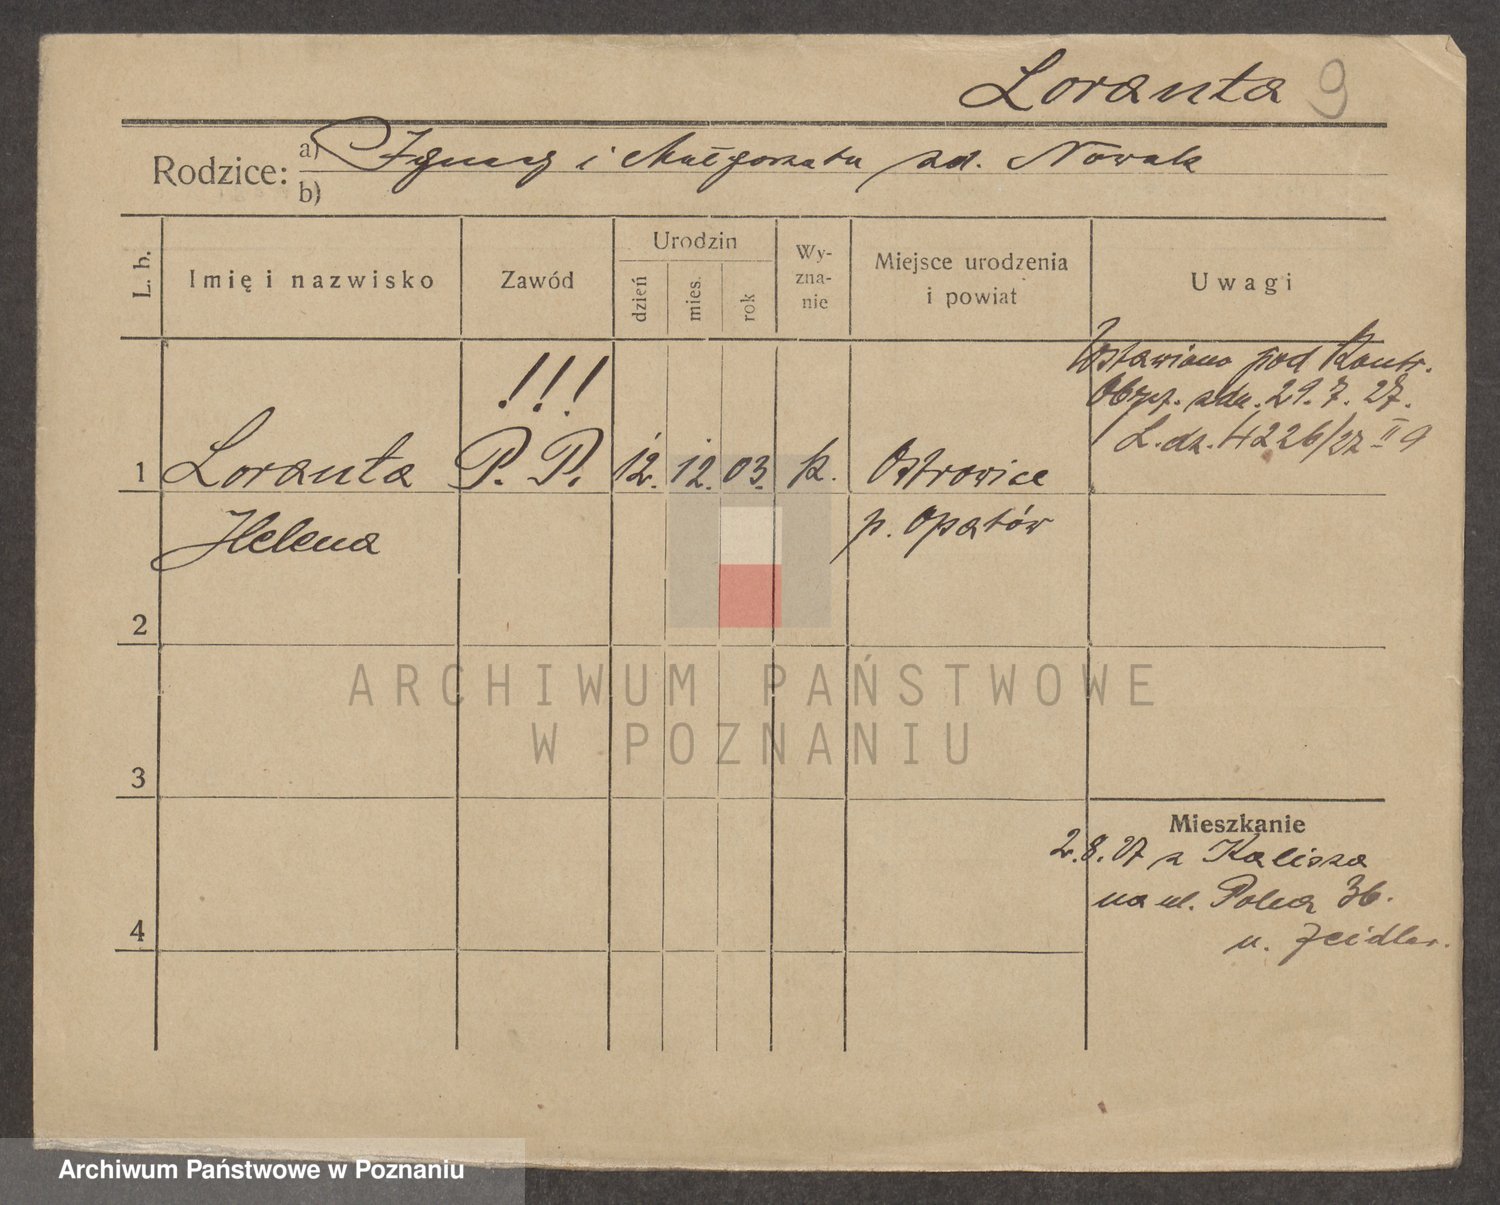 Loranta 9
Rodzice: a) Ignacy i Małgorzata zd. Nowak
b)
L. b.
Imię i nazwisko
Zawód
Urodzin
dzień
mies.
rok
Wy-
zna-
nie
Miejsce urodzenia
i powiat
Uwagi
!!!
1 Loranta P. P. 12. 12. 03. k. Ostrowice
Helena p. Opatów
pod Kontr.
Obycz. 29. 7. 27.
L. dz. 4226/27 II 9
2
3
4
Mieszkanie
2.8.27 z Kalisza
na ul. Polna 36.
u. Zeidler.
ARCHIWUM PAŃSTWOWE
W POZNANIU
Archiwum Państwowe w Poznaniu